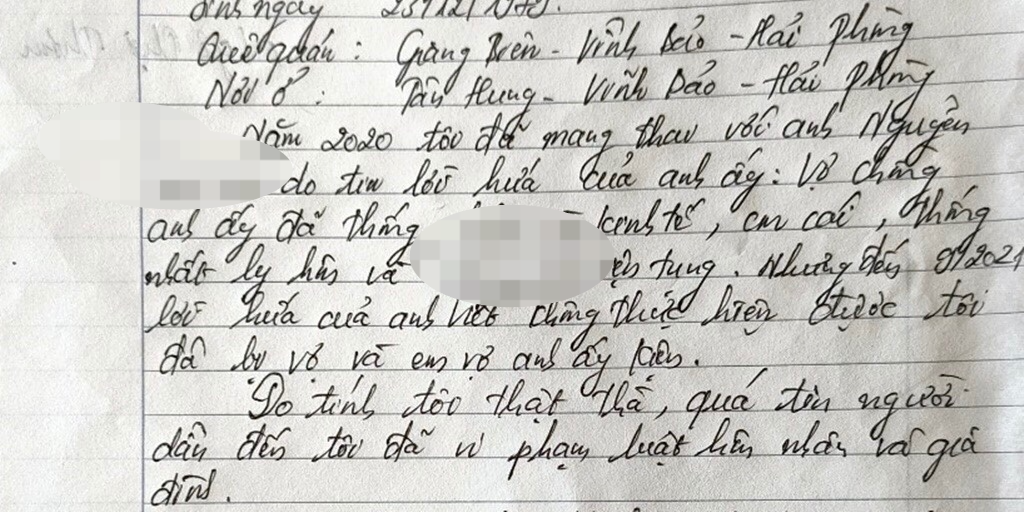 Sinh ngày 23/12/
Quê quán: Giang Biên - Vĩnh Bảo - Hải Phòng
Nơi ở: Tân Hưng - Vĩnh Bảo - Hải Phòng
Năm 2020 tôi đã mang thai với anh Nguyễn
do tin lời hứa của anh ấy: Vợ chồng
anh ấy đã thống kinh tế, con cái, thống
nhất ly hôn và tụng. Nhưng đến 9/2021
lời hứa của anh chưa thực hiện được tôi
đã bị vợ và em vợ anh ấy kiện.
Do tính tôi thật thà, quá tin người
dẫn đến tôi đã vi phạm luật hôn nhân và gia
đình.